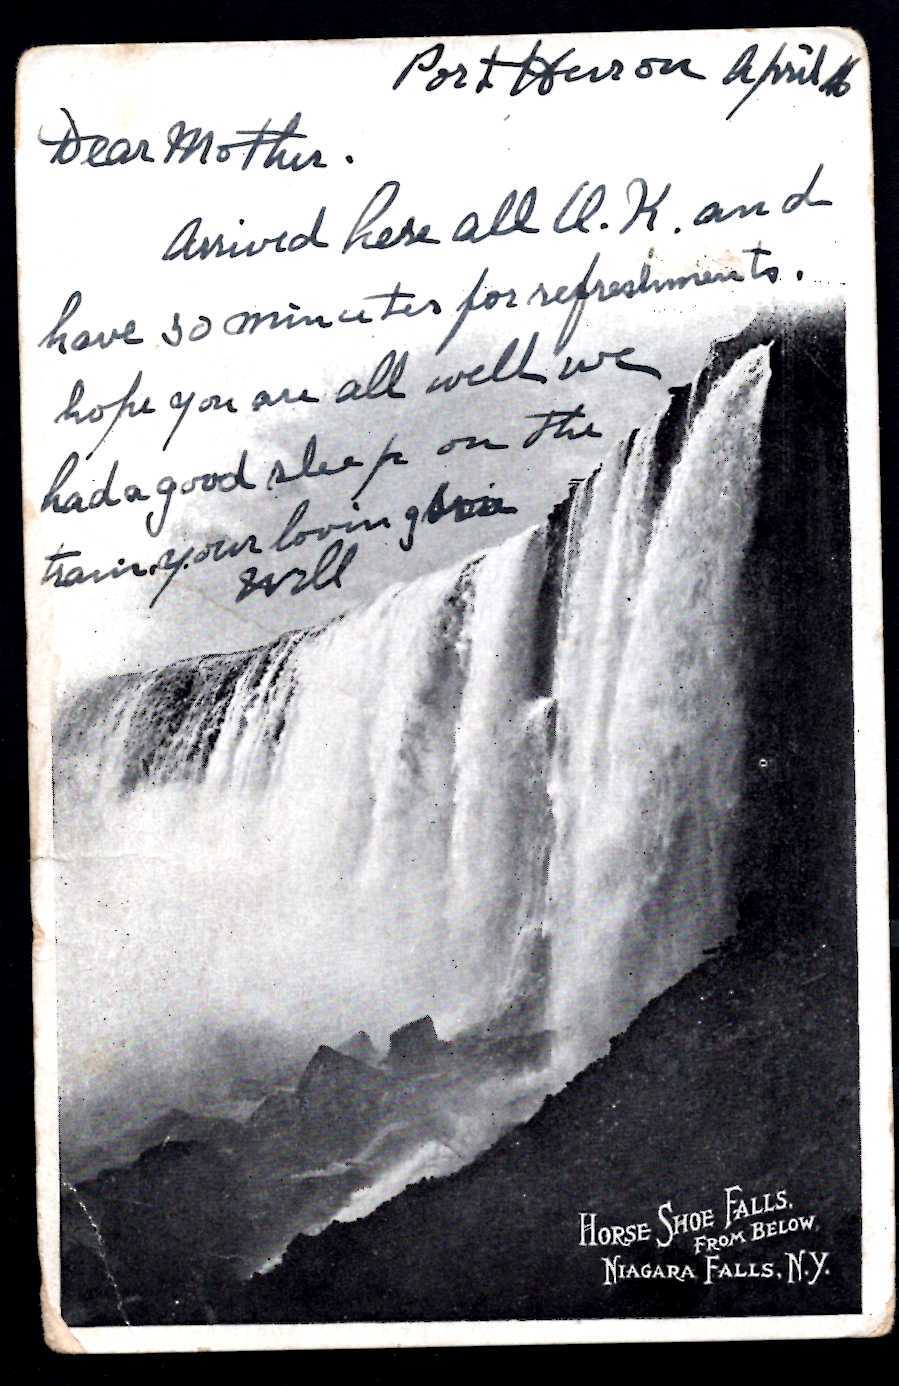 Port Huron April 16
Dear Mother.
Arrived here all O.K. and
have 30 minutes for refreshments.
hope you are all well we
had a good sleep on the
train. your loving son
Will
HORSE SHOE FALLS,
FROM BELOW,
NIAGARA FALLS, N.Y.